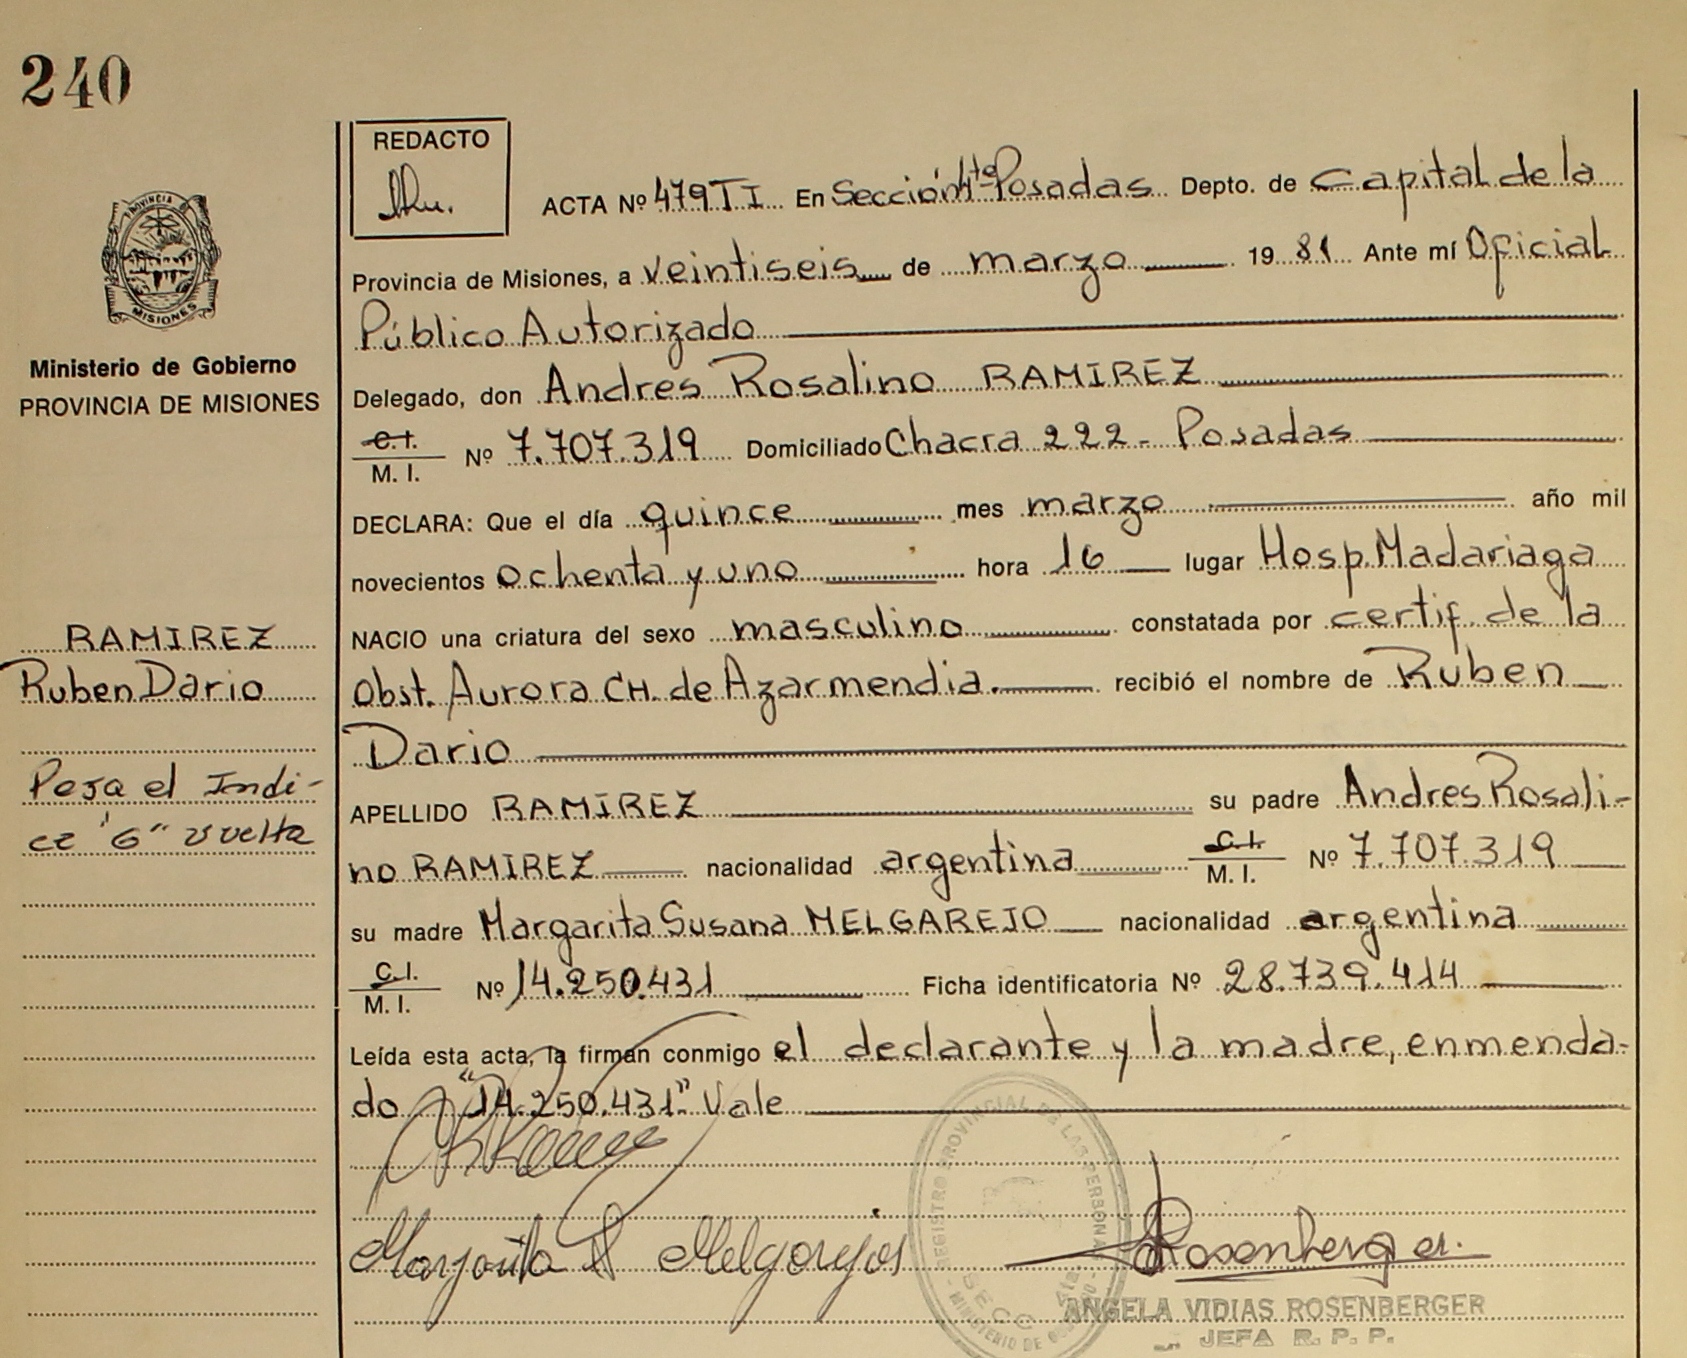 240
REDACTO
ACTA Nº 479 TI En Sección 4ta Posadas Depto. de Capital de la
Provincia de Misiones, a veintiseis de marzo 1981 Ante mí Oficial
Público Autorizado
Delegado, don Andres Rosalino RAMIREZ
C.I.
M. I. Nº 7.707.319 Domiciliado Chacra 222 - Posadas
DECLARA: Que el día quince mes marzo año mil
novecientos ochenta y uno hora 16 lugar Hosp. Madariaga
NACIO una criatura del sexo masculino constatada por certif. de la
Obst. Aurora CH. de Azarmendia. recibió el nombre de Ruben
Dario
APELLIDO RAMIREZ su padre Andres Rosali-
no RAMIREZ nacionalidad argentina C.I. M. I. Nº 7.707.319
su madre Margarita Susana MELGAREJO nacionalidad argentina
C.I.
M. I. Nº 14.250.431 Ficha identificatoria Nº 28.739.414
Leída esta acta, la firman conmigo el declarante y la madre, enmenda-
do "14.250.431" Vale
Margarita S Melgarejo
Rosenberger.
ANGELA VIDIAS ROSENBERGER
JEFA R. P. P.
REGISTRO PROVINCIAL DE LAS PERSONAS
MINISTERIO DE GOBIERNO
SECC. 4ta
PROVINCIA
MISIONES
Ministerio de Gobierno
PROVINCIA DE MISIONES
RAMIREZ
Ruben Dario
Pasa el Indi-
ce "G" vuelta